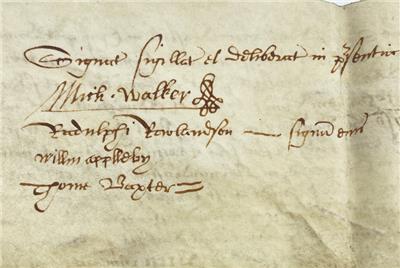 Signat sigillat et deliberat in p'sentia
Mich. Walker
Radulphi Rowlandson — signū eius
willm appleby
Thome Baxter